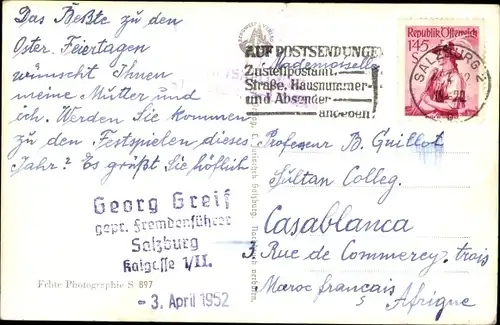 Das Beßte zu den
Oster. Feiertagen
wünscht Ihnen
meine Mutter und
ich. Werden Sie kommen
zu den Festspielen dieses
Jahr? Es grüßt Sie höflich
Georg Greif
gepr. Fremdenführer
Salzburg
Kaigasse 1/II.
- 3. April 1952
Echte Photographie S 897
AUF POSTSENDUNGEN
Zustellpostamt,
Straße, Hausnummer
und Absender
angeben!
Republik Österreich
145
SALZBURG 2
Mademoiselle
Professeur B. Guillot
Sultan Colleg.
Casablanca
3 Rue de Commercy. trois
Maroc français
Afrique